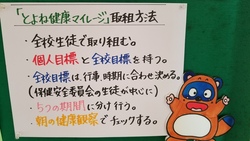 「とよね健康マイレージ」取組方法
・全校生徒で取り組む。
・個人目標と全校目標を持つ。
・全校目標は、行事、時期に合わせ決める。
(保健安全委員会の生徒が中心に)
・5つの期間に分け行う。
・朝の健康観察でチェックする。